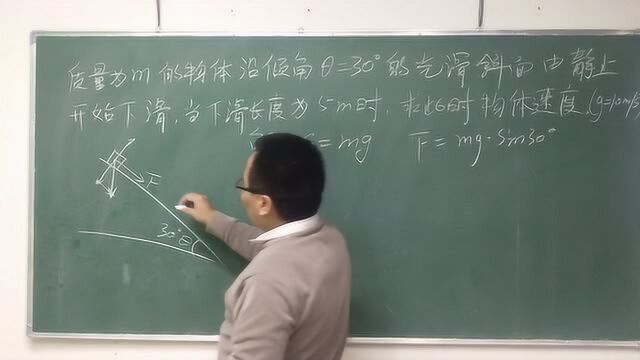 质量为m的物体沿倾角θ=30°的光滑斜面由静止
开始下滑,当下滑长度为5m时,求此时物体速度,(g=10m/s
= mg F = mg·sin30°
F
30° θ